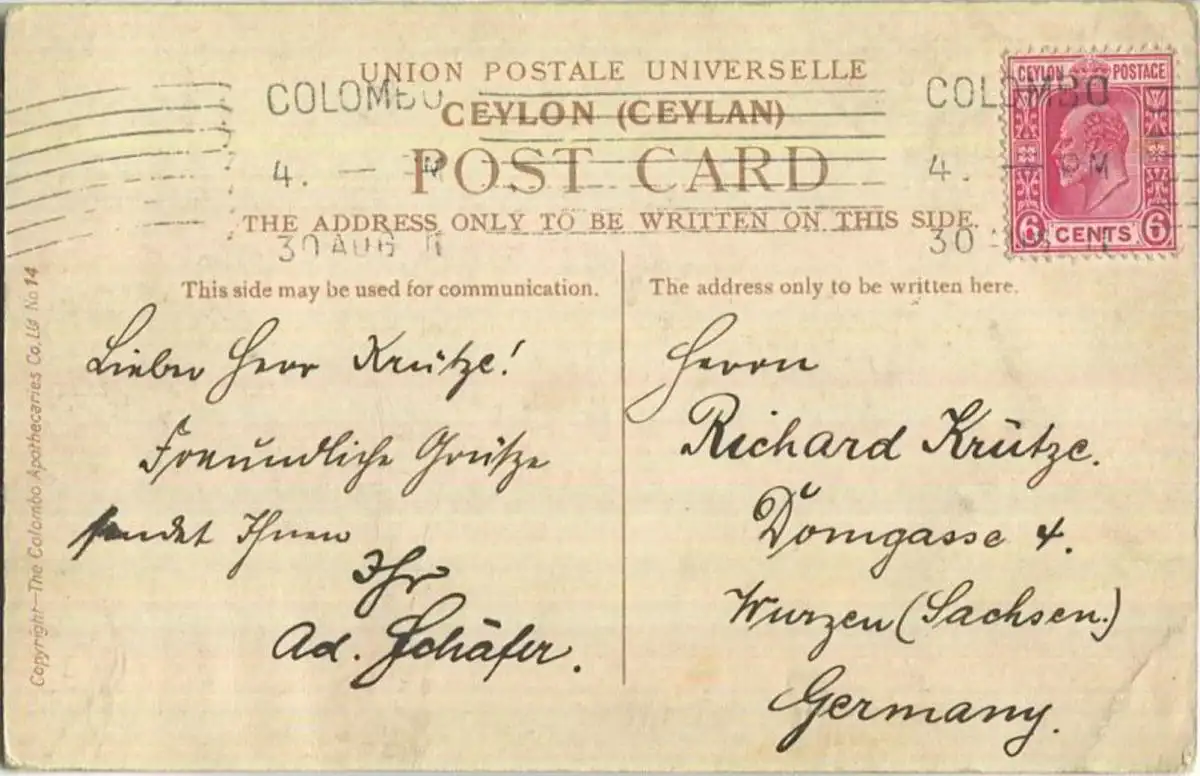 UNION POSTALE UNIVERSELLE
COLOMBO
COLOMBO
CEYLON POSTAGE
CEYLON (CEYLAN)
4. — PM
POST CARD
4. — PM
THE ADDRESS ONLY TO BE WRITTEN ON THIS SIDE.
30 AUG 11
30
6 CENTS 6
This side may be used for communication.
The address only to be written here.
Lieber Herr Krütze!
Freundliche Grütze
sendet Ihnen
Ihr
Ad. Schäfer.
Herrn
Richard Krütze.
Domgasse 4.
Wurzen (Sachsen.)
Germany.
Copyright—The Colombo Apothecaries Co. Ltd No 14